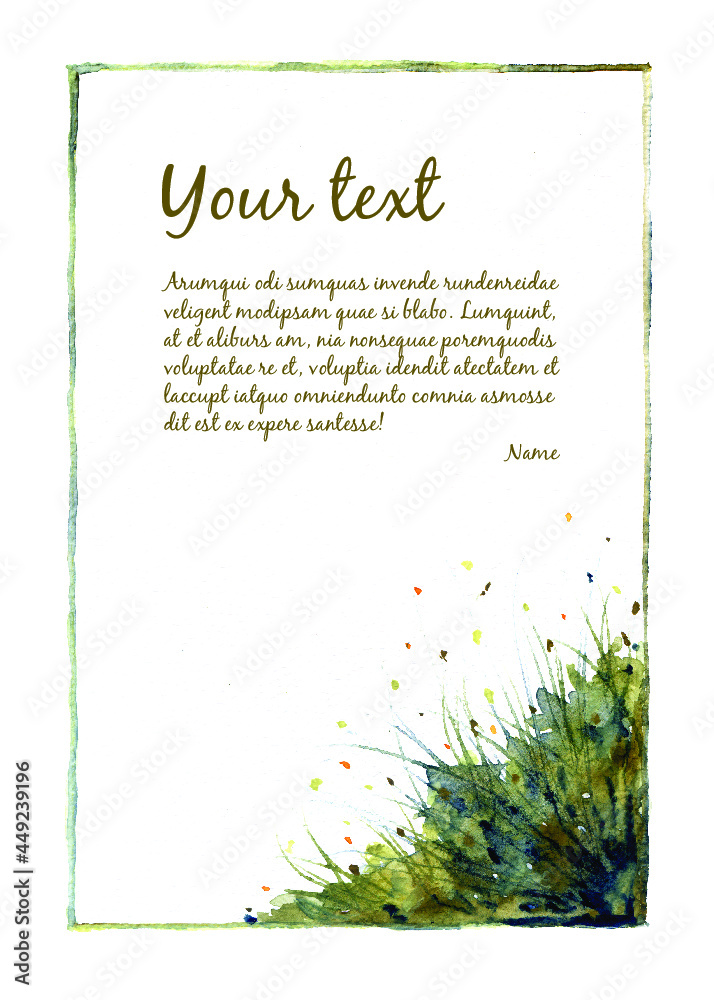 Your text
Arumqui odi sumquas invende rundenreidae
veligent modipsam quae si blabo. Lumquint,
at et aliburs am, nia nonsequae poremquodis
voluptatae re et, voluptia idendit atectatem et
laccupt iatquo omniendunto comnia asmosse
dit est ex expere santesse!
Name
Adobe Stock | #449239196
Adobe Stock